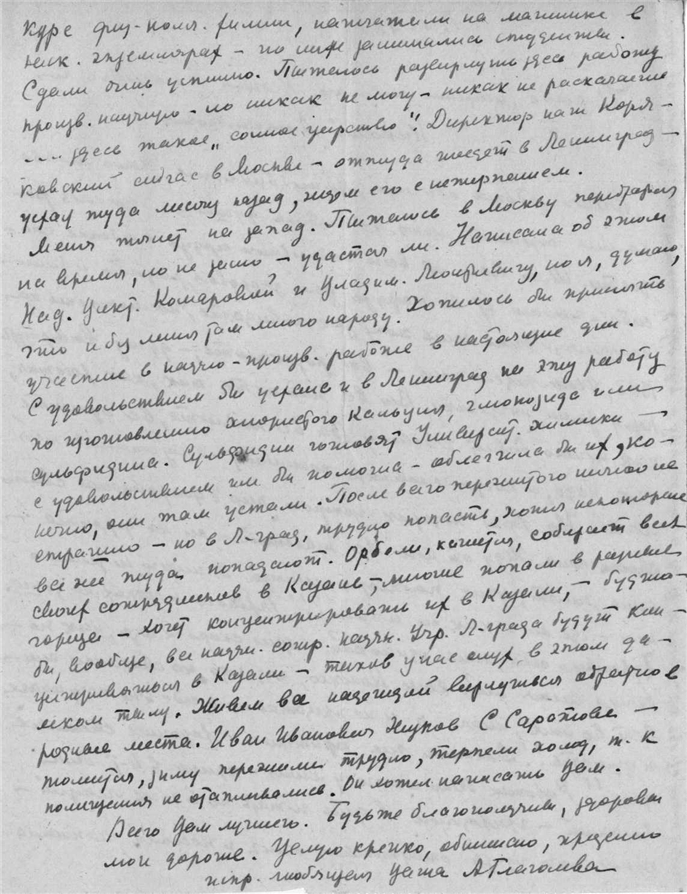 курс физ-колл. химии, напечатали на машинке в
неск. экземплярах – по ним занимались студенты.
Сдали очень успешно. Пыталась развернуть здесь работу
произв. научную – но никак не могу – никак не раскачаешь
.... здесь такое „сонное царство“. Директор наш Коря-
ковский сейчас в Москве – откуда поедет в Ленинград –
уехал туда месяц назад, ждем его с нетерпением.
Меня тянет на запад. Пыталась в Москву перебраться
на время, но не знаю – удастся ли. Написала об этом
Над. Викт. Комаровой и Владим. Леонтьевичу, но я, думаю,
это и без меня там много народу. Хотелось бы принять
участие в научно-произв. работе в настоящие дни.
С удовольствием бы уехала и в Ленинград на эту работу
по изготовлению хлористого кальция, глюкозида или
сульфидина. Сульфидин готовят Университ. химики –
с удовольствием им бы помогла – облегчила бы их, ко-
нечно, они там устали. После всего пережитого ничего не
страшно – но в Л-град, трудно попасть, хотя некоторые
все же туда попадают. Орбели, кажется, собирает всех
своих сотрудников в Казань, – многие попали в разные
города – хочет концентрировать их в Казани, – будто
бы, вообще, все научн. сотр. научн. учр. Л-града будут кон-
центрироваться в Казани – таков у нас слух в этом да-
леком тылу. Живем все надеждой вернуться обратно в
родные места. Иван Иванович Жуков с Саратове –
томится, зиму пережили трудно, терпели холод, т. к
помещения не отапливались. Он хотел написать Вам.
Всего Вам лучшего. Будьте благополучны, здоровы
мои дорогие. Целую крепко, обнимаю, преданно
искр. любящая Ваша А Глаголева